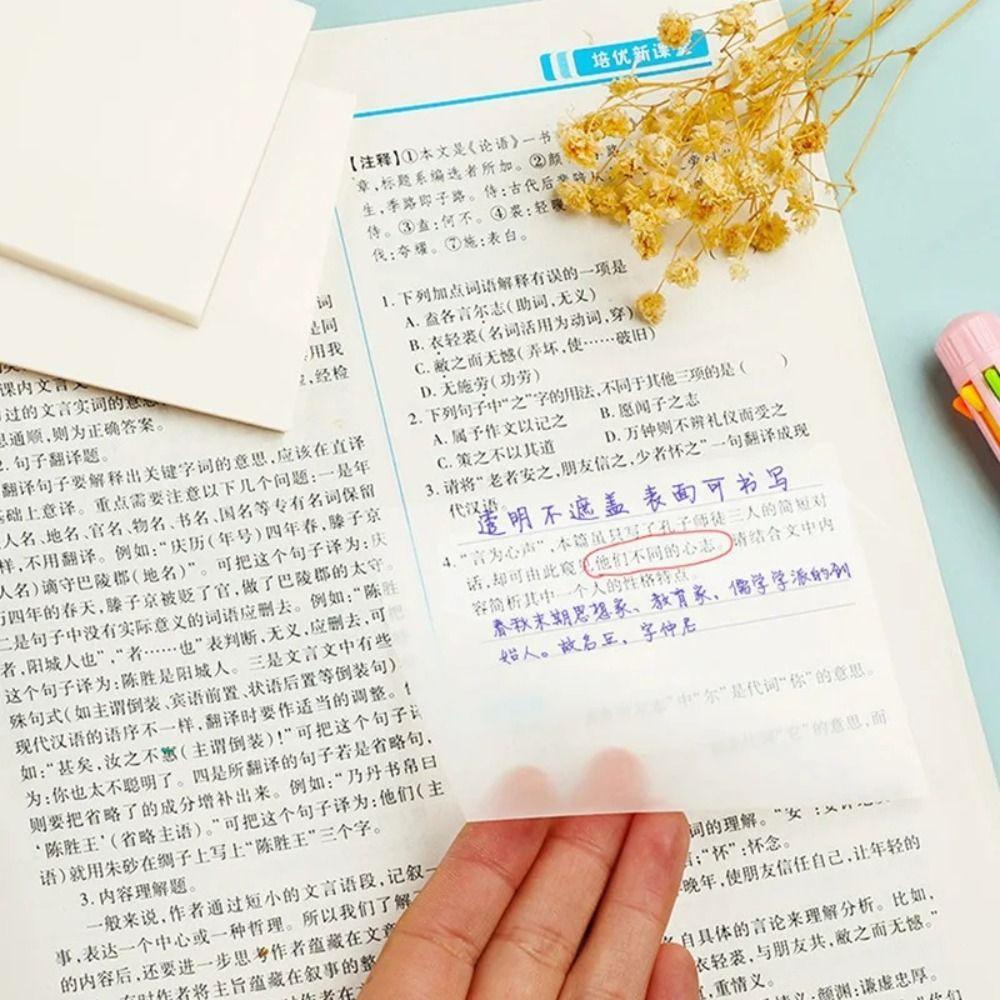 培优新课堂
【注释】①本文是《论语》一书
章,标题系编选者所加。②颜
生,季路即子路。侍:古代后辈陪从
侍。③盍:何不。④裘:轻暖
伐:夸耀。⑦施:表白。
1. 下列加点词语解释有误的一项是
A. 盍各言尔志(助词,无义)
B. 衣轻裘(名词活用为动词,穿)
C. 敝之而无憾(弄坏,使……破旧)
D. 无施劳(功劳)
2. 下列句子中“之”字的用法,不同于其他三项的是( )
A. 属予作文以记之 B. 愿闻子之志
C. 策之不以其道 D. 万钟则不辨礼仪而受之
3. 请将“老者安之,朋友信之,少者怀之”一句翻译成现
代汉语。
透明不遮盖 表面可书写
4. “言为心声”,本篇虽只写了孔子师徒三人的简短对
话,却可由此窥见他们不同的心志。请结合文中内
容简析其中一个人的性格特点。
春秋末期思想家、教育家,儒学学派的创
始人。故名丘,字仲尼
中“尔”是代词“你”的意思。
“它”的意思,而
词的理解。“安”:
;“怀”:怀念。
晚年,使朋友信任自己,让年轻的
自具体的言论来理解分析。比如,
衣轻裘,与朋友共,敝之而无憾。”
,重情义。
颜渊:谦虚忠厚。
词
是同
用我
,经检
课内文言文
过的文言实词的意思
思通顺,则为正确答案。
2. 句子翻译题。
翻译句子要解释出关键字词的意思,应该在直译
基础上意译。重点需要注意以下几个问题:一是年
人名、地名、官名、物名、书名、国名等专有名词保留
样,不用翻译。例如:“庆历(年号)四年春,滕子京
人名)谪守巴陵郡(地名)”。可把这个句子译为:庆
历四年的春天,滕子京被贬了官,做了巴陵郡的太守。
二是句子中没有实际意义的词语应删去。例如:“陈胜
者,阳城人也”,“者……也”表判断,无义,应删去,可
这个句子译为:陈胜是阳城人。三是文言文中有些
殊句式(如主谓倒装、宾语前置、状语后置等倒装句)
现代汉语的语序不一样,翻译时要作适当的调整。
如:“甚矣,汝之不惠(主谓倒装)!”可把这个句子译
为:你也太不聪明了。四是所翻译的句子若是省略句,
则要把省略了的成分增补出来。例如:“乃丹书帛曰
‘陈胜王’(省略主语)。”可把这个句子译为:他们(主
语)就用朱砂在绸子上写上“陈胜王”三个字。
3. 内容理解题。
一般来说,作者通过短小的文言语段,记叙一
事,表达一个中心或一种哲理。所以我们了解
的内容后,还要进一步思考作者蕴藏在文章
有时作者将主旨蕴藏在叙事的整